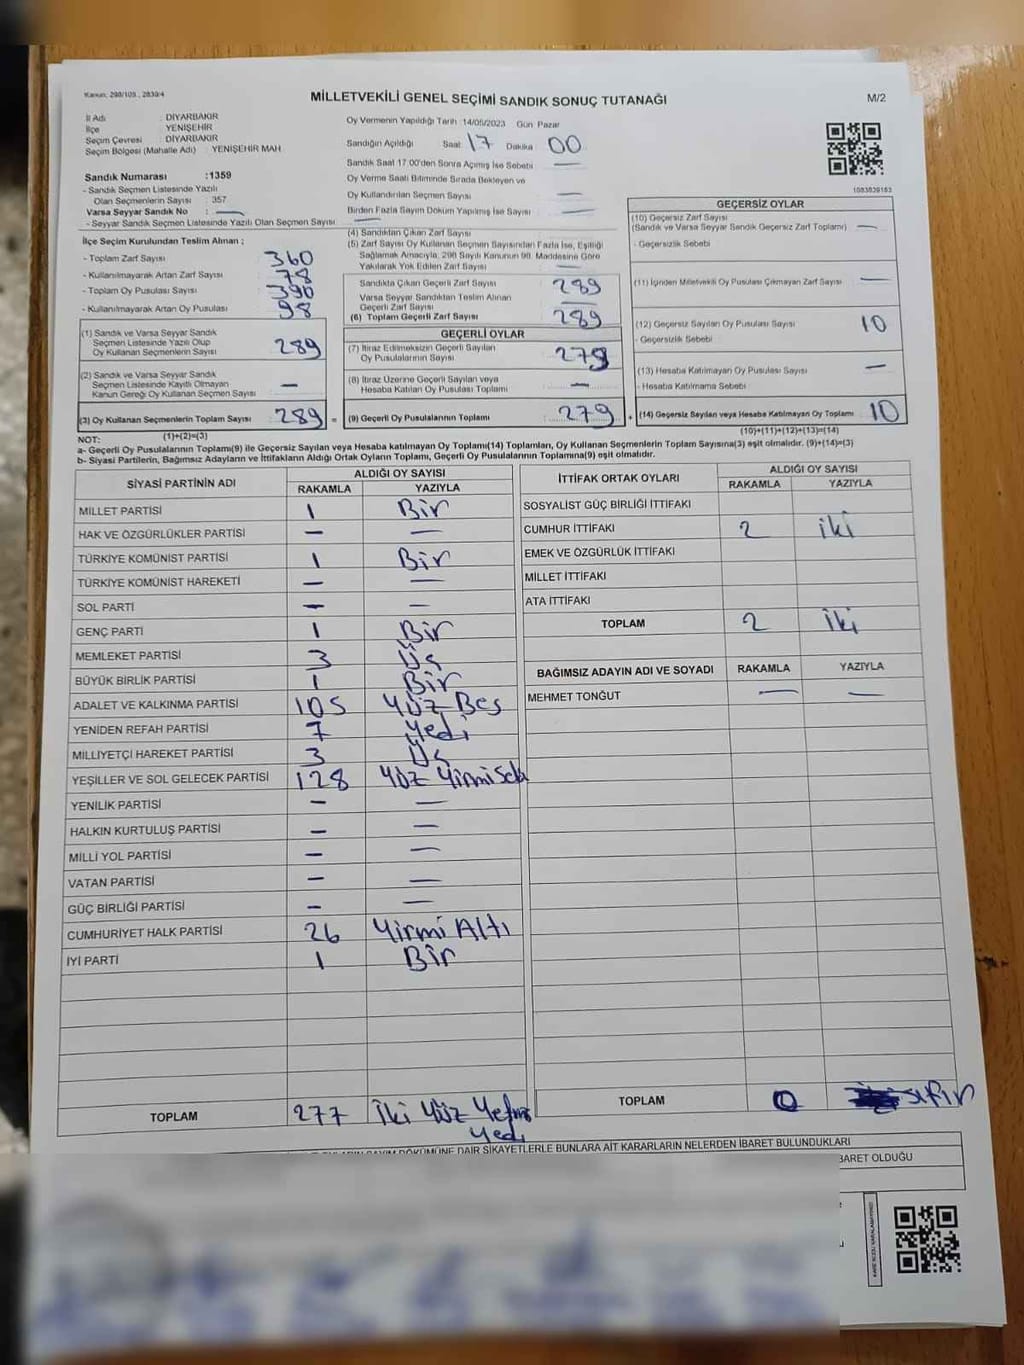 Kanun: 298/105., 2839/4
MİLLETVEKİLİ GENEL SEÇİMİ SANDIK SONUÇ TUTANAĞI
M/2
İl Adı : DİYARBAKIR
İlçe : YENİŞEHİR
Seçim Çevresi : DİYARBAKIR
Seçim Bölgesi (Mahalle Adı) : YENİŞEHİR MAH
Sandık Numarası :1359
- Sandık Seçmen Listesinde Yazılı
Olan Seçmenlerin Sayısı : 357
Varsa Seyyar Sandık No : —
- Seyyar Sandık Seçmen Listesinde Yazılı Olan Seçmen Sayısı : —
Oy Vermenin Yapıldığı Tarih 14/05/2023 Gün Pazar
Sandığın Açıldığı Saat 17 Dakika 00
Sandık Saat 17.00'den Sonra Açılmış İse Sebebi —
Oy Verme Saati Bitiminde Sırada Bekleyen ve
Oy Kullandırılan Seçmen Sayısı —
Birden Fazla Sayım Döküm Yapılmış İse Sayısı —
1083839163
İlçe Seçim Kurulundan Teslim Alınan ;
- Toplam Zarf Sayısı : 360
- Kullanılmayarak Artan Zarf Sayısı : 78
- Toplam Oy Pusulası Sayısı : 390
- Kullanılmayarak Artan Oy Pusulası : 98
(1) Sandık ve Varsa Seyyar Sandık
Seçmen Listesinde Yazılı Olup
Oy Kullanan Seçmenlerin Sayısı : 289
(2) Sandık ve Varsa Seyyar Sandık
Seçmen Listesinde Kayıtlı Olmayan
Kanun Gereği Oy Kullanan Seçmen Sayısı —
(3) Oy Kullanan Seçmenlerin Toplam Sayısı 289 =
(1)+(2)=(3)
(4) Sandıktan Çıkan Zarf Sayısı
(5) Zarf Sayısı Oy Kullanan Seçmen Sayısından Fazla İse, Eşitliği
Sağlamak Amacıyla, 298 Sayılı Kanunun 98. Maddesine Göre
Yakılarak Yok Edilen Zarf Sayısı —
Sandıkta Çıkan Geçerli Zarf Sayısı 289
Varsa Seyyar Sandıktan Teslim Alınan
Geçerli Zarf Sayısı —
(6) Toplam Geçerli Zarf Sayısı 289
GEÇERLİ OYLAR
(7) İtiraz Edilmeksizin Geçerli Sayılan
Oy Pusulalarının Sayısı 279
(8) İtiraz Üzerine Geçerli Sayılan veya
Hesaba Katılan Oy Pusulası Toplamı —
(9) Geçerli Oy Pusulalarının Toplamı : 279 +
GEÇERSİZ OYLAR
(10) Geçersiz Zarf Sayısı
(Sandık ve Varsa Seyyar Sandık Geçersiz Zarf Toplamı) —
- Geçersizlik Sebebi
(11) İçinden Milletvekili Oy Pusulası Çıkmayan Zarf Sayısı —
(12) Geçersiz Sayılan Oy Pusulası Sayısı 10
- Geçersizlik Sebebi
(13) Hesaba Katılmayan Oy Pusulası Sayısı —
- Hesaba Katılmama Sebebi
(14) Geçersiz Sayılan veya Hesaba Katılmayan Oy Toplamı 10
(10)+(11)+(12)+(13)=(14)
NOT:
a- Geçerli Oy Pusulalarının Toplamı(9) ile Geçersiz Sayılan veya Hesaba katılmayan Oy Toplamı(14) Toplamları, Oy Kullanan Seçmenlerin Toplam Sayısına(3) eşit olmalıdır. (9)+(14)=(3)
b- Siyasi Partilerin, Bağımsız Adayların ve İttifakların Aldığı Ortak Oyların Toplamı, Geçerli Oy Pusulalarının Toplamına(9) eşit olmalıdır.
SİYASİ PARTİNİN ADI ALDIĞI OY SAYISI
RAKAMLA YAZIYLA
MİLLET PARTİSİ 1 Bir
HAK VE ÖZGÜRLÜKLER PARTİSİ — —
TÜRKİYE KOMÜNİST PARTİSİ 1 Bir
TÜRKİYE KOMÜNİST HAREKETİ — —
SOL PARTİ — —
GENÇ PARTİ 1 Bir
MEMLEKET PARTİSİ 3 Üç
BÜYÜK BİRLİK PARTİSİ 1 Bir
ADALET VE KALKINMA PARTİSİ 105 Yüz Beş
YENİDEN REFAH PARTİSİ 7 Yedi
MİLLİYETÇİ HAREKET PARTİSİ 3 Üç
YEŞİLLER VE SOL GELECEK PARTİSİ 128 Yüz Yirmi
YENİLİK PARTİSİ — —
HALKIN KURTULUŞ PARTİSİ — —
MİLLİ YOL PARTİSİ — —
VATAN PARTİSİ — —
GÜÇ BİRLİĞİ PARTİSİ — —
CUMHURİYET HALK PARTİSİ 26 Yirmi Altı
İYİ PARTİ 1 Bir
TOPLAM 277 İki Yüz
Yedi
İTTİFAK ORTAK OYLARI ALDIĞI OY SAYISI
RAKAMLA YAZIYLA
SOSYALİST GÜÇ BİRLİĞİ İTTİFAKI
CUMHUR İTTİFAKI 2 iki
EMEK VE ÖZGÜRLÜK İTTİFAKI
MİLLET İTTİFAKI
ATA İTTİFAKI
TOPLAM 2 iki
BAĞIMSIZ ADAYIN ADI VE SOYADI RAKAMLA YAZIYLA
MEHMET TONĞUT — —
TOPLAM 0 sıfır
DÖKÜMÜNE DAİR ŞİKAYETLERLE BUNLARA AİT KARARLARIN NELERDEN İBARET BULUNDUKLARI
BARET OLDUĞU